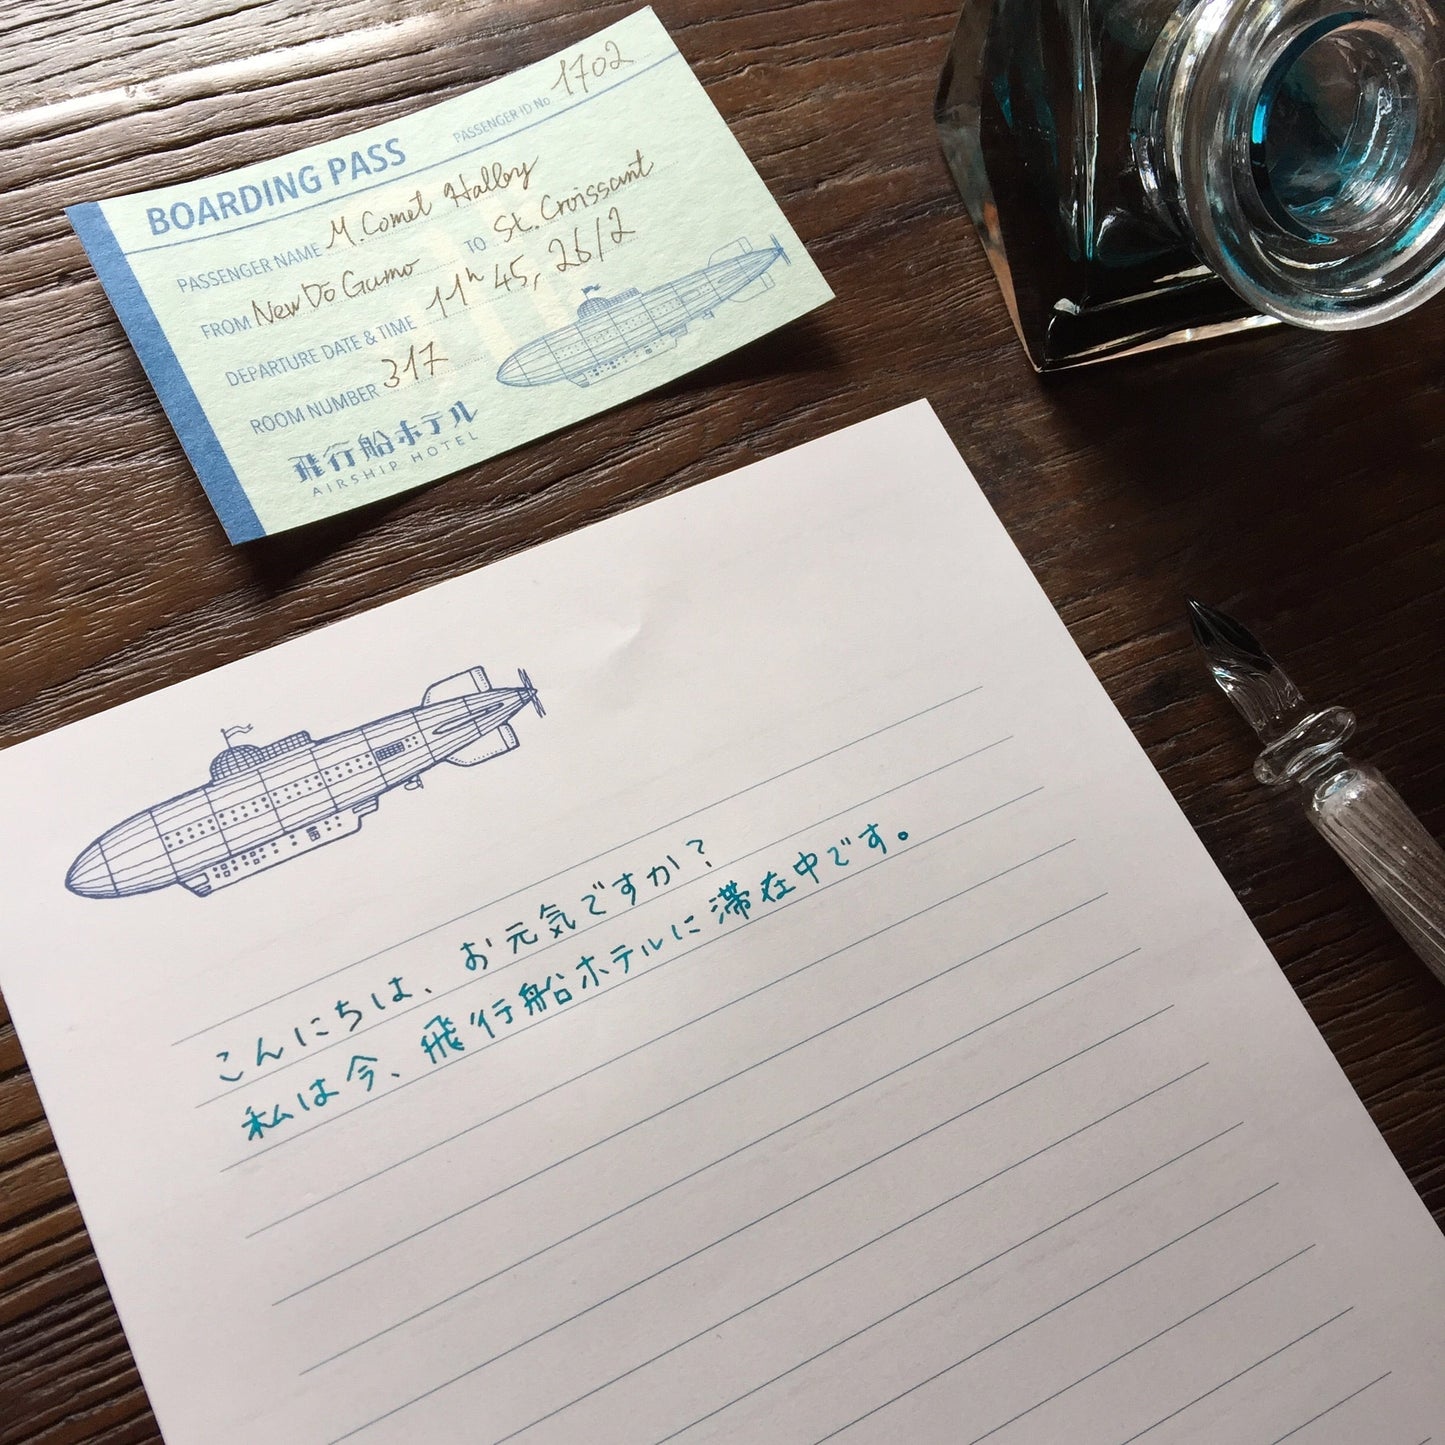 BOARDING PASS
PASSENGER ID No 1702
PASSENGER NAME M. Comet Halley
FROM New Do Gumo TO St. Croissant
DEPARTURE DATE & TIME 11h 45, 26/2
ROOM NUMBER 317
飛行船ホテル
AIRSHIP HOTEL
こんにちは、お元気ですか?
私は今、飛行船ホテルに滞在中です。